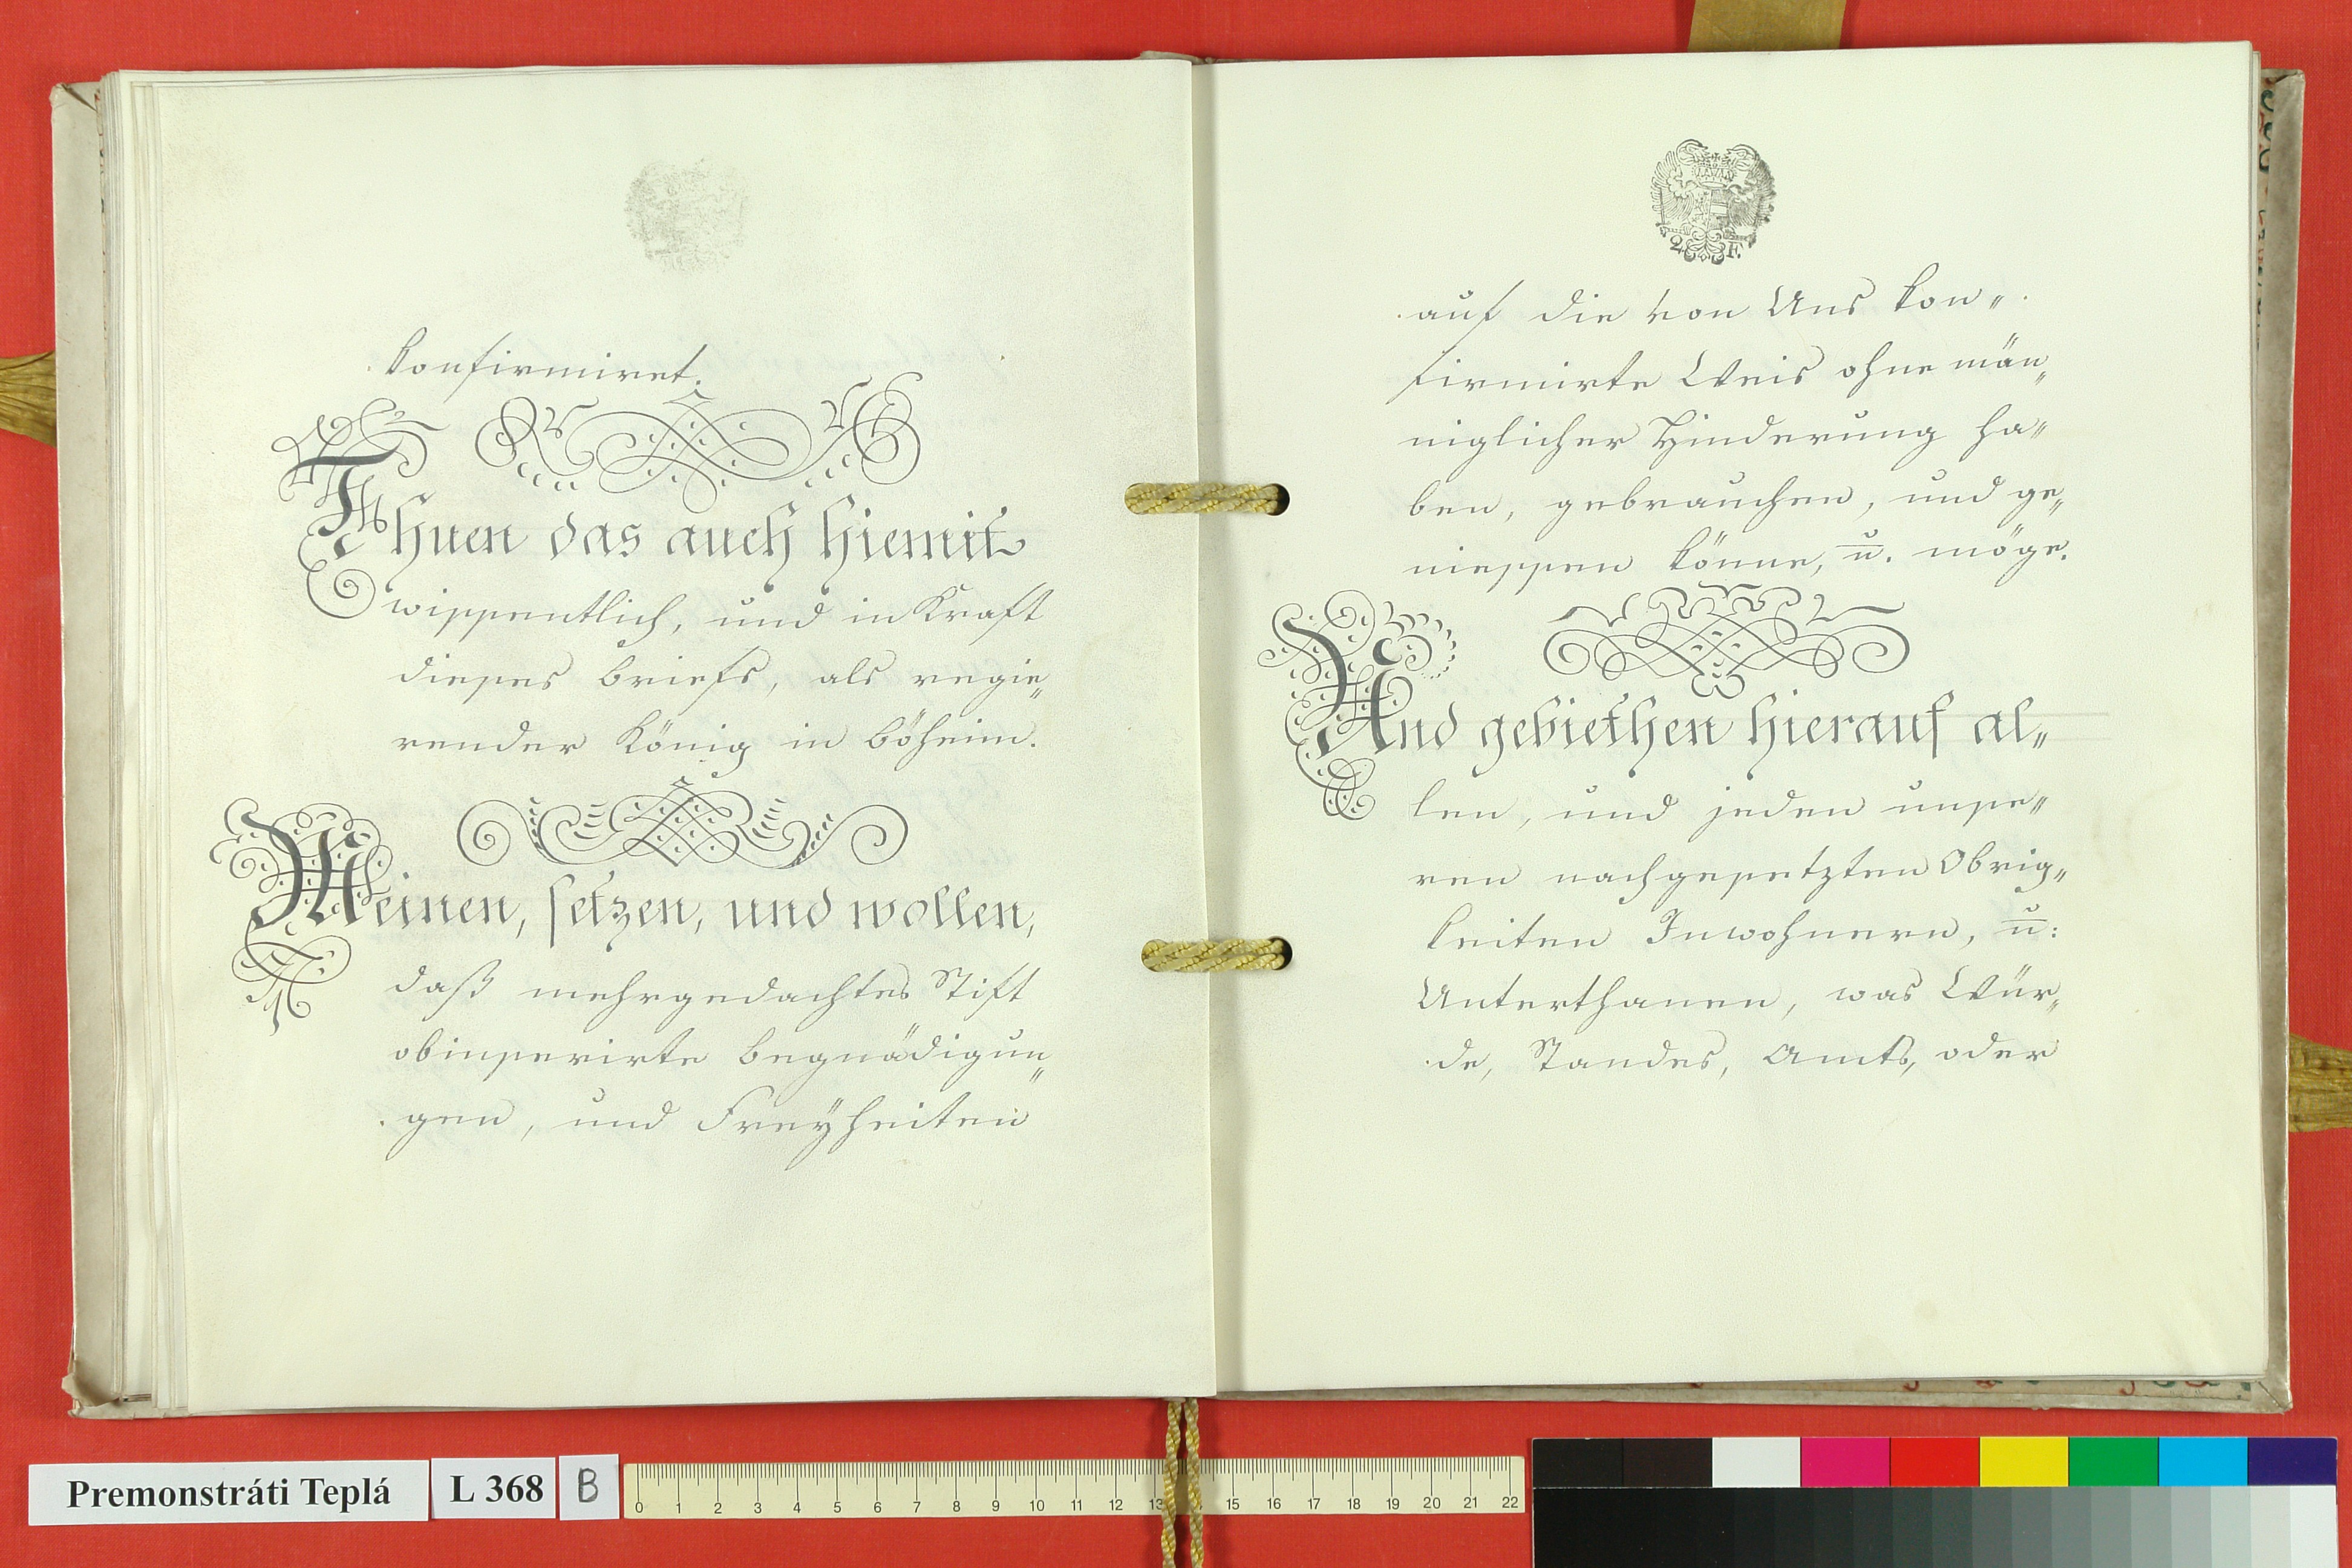 konfirmiret.
Thuen das auch hiemit
wissentlich, und in Kraft
dieses briefs, als regie„
render König in böheim.
Meinen, setzen, und wollen,
daß mehrgedachtes Stift
obinserirte begnädigun„
gen, und Freyheiten
2. F.
auf die von Uns kon„
firmirte Weis ohne män„
niglicher Hinderung ha„
ben, gebrauchen, und ge„
niessen könne, u. möge.
Und gebiethen hierauf al„
len, und jeden unse„
ren nachgesetzten Obrig„
keiten Inwohnern, u:
Unterthanen, was Wür„
de, Standes, Amts, oder
Premonstráti Teplá
L 368
B
0 1 2 3 4 5 6 7 8 9 10 11 12 13 15 16 17 18 19 20 21 22